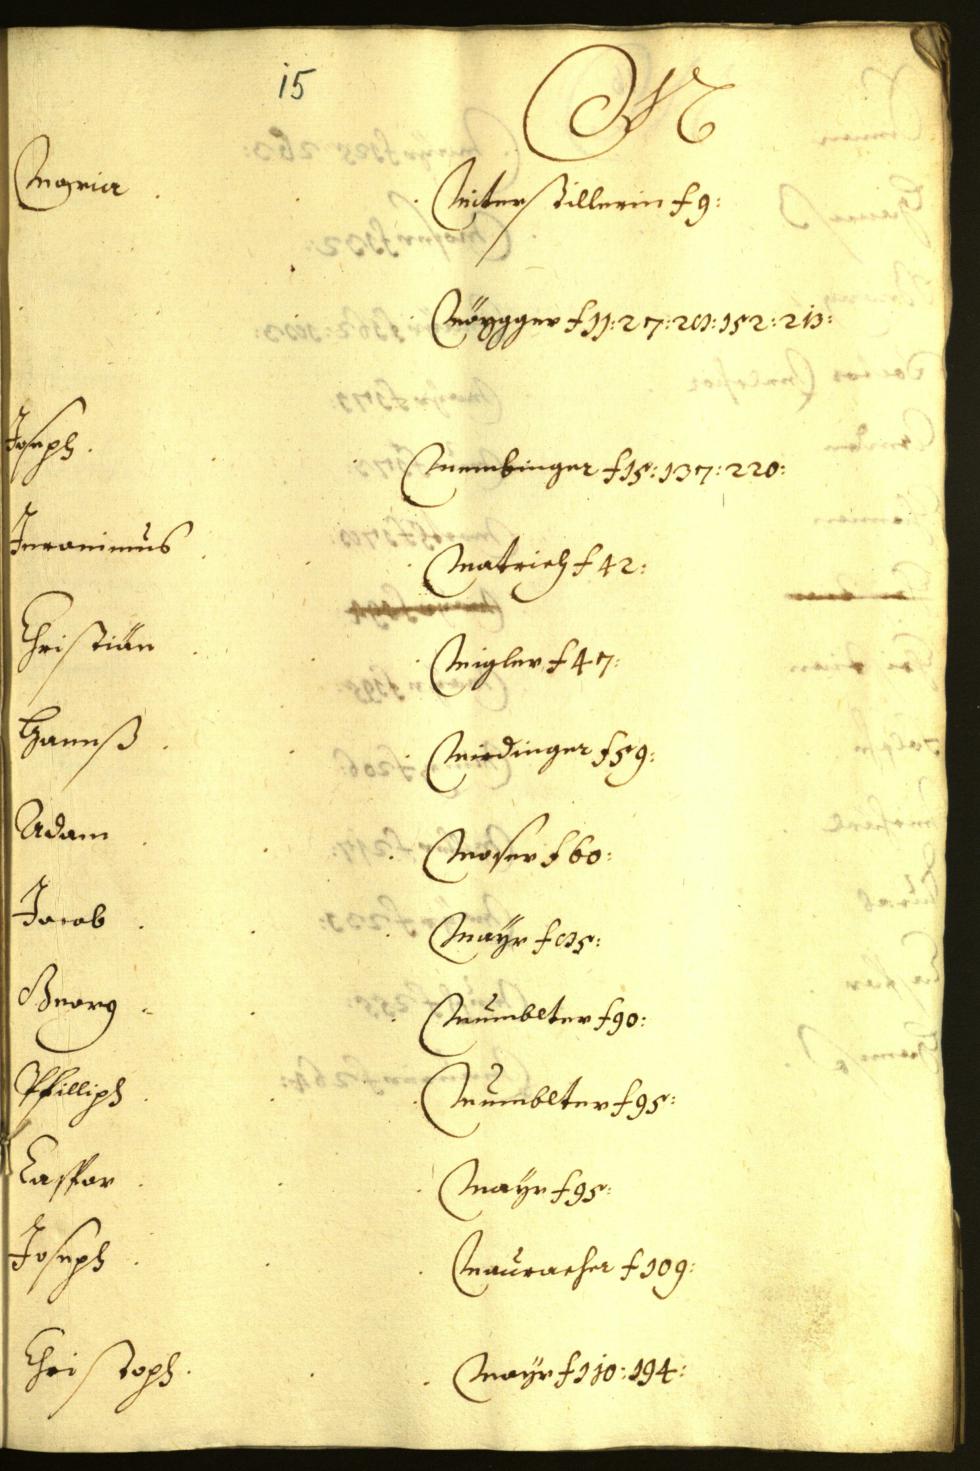 15
M
Maria Miterstillerin f 9:
Möŋgger f 11: 27: 201: 152: 213:
Joseph Membinger f 15: 137: 220:
Jeronimus Matrich f 42:
Christian Migler f 47:
Hannß Miedinger f 59:
Adam Moser f 60:
Jacob Mayr f 85:
Georg Mumblter f 90:
Philliph Mumblter f 95:
Caspar Mayr f 95:
Joseph Mauracher f 109:
Christoph Mayr f 110: 194: